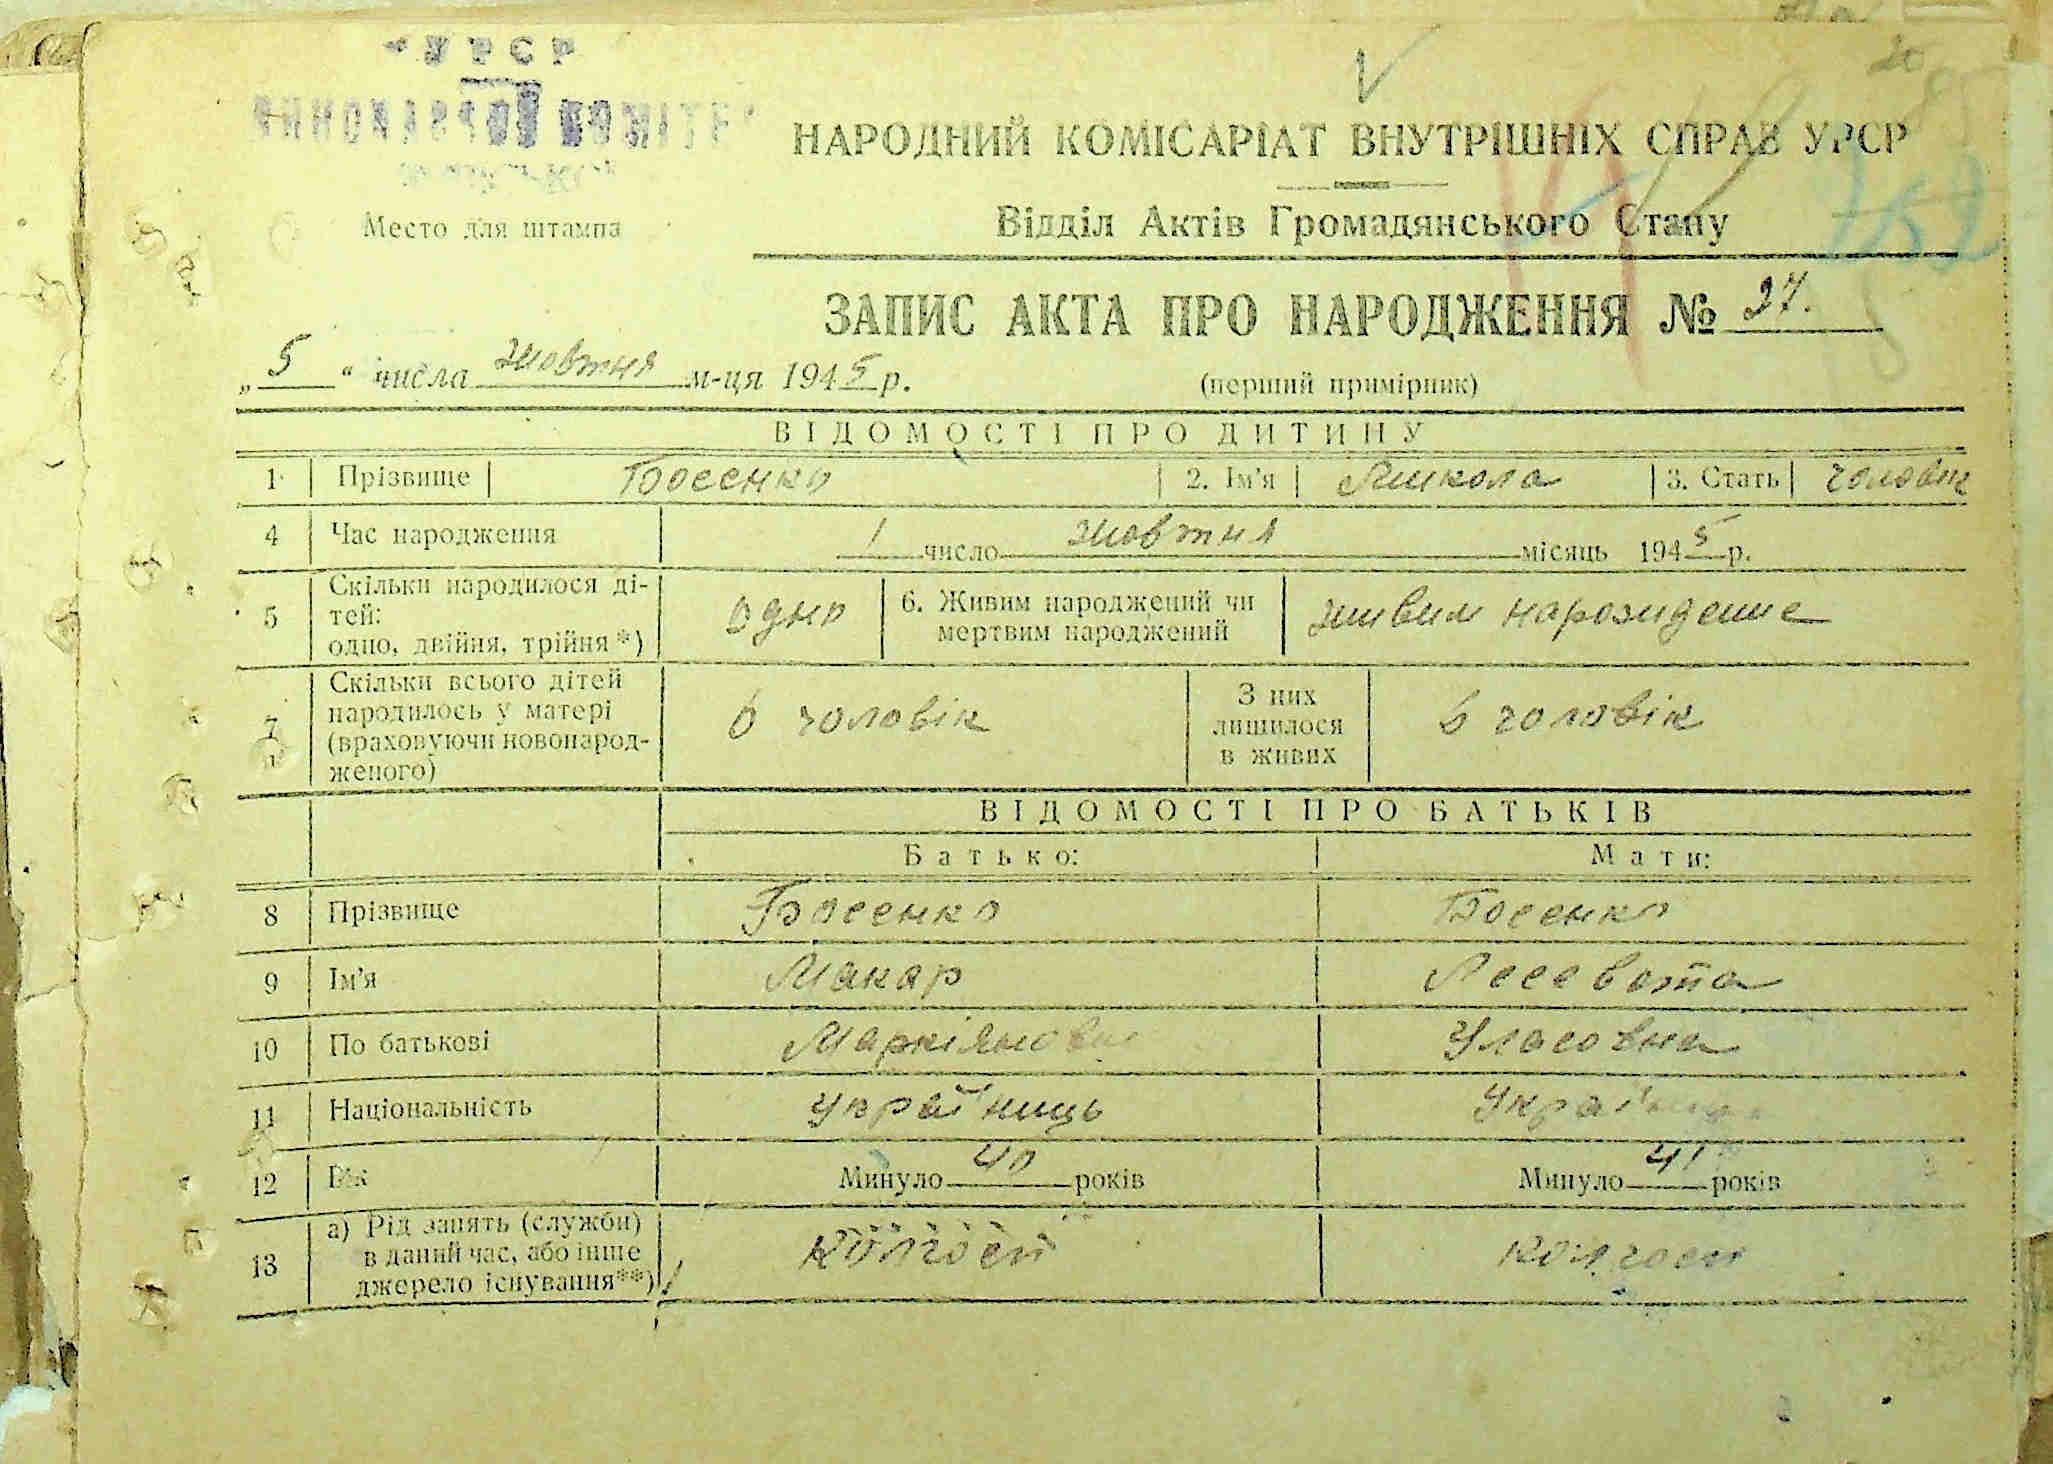 НАРОДНИЙ КОМІСАРІАТ ВНУТРІШНІХ СПРАВ УРСР
Место для штампа
Відділ Актів Громадянського Стану
ЗАПИС АКТА ПРО НАРОДЖЕННЯ № 27.
„5“ числа жовтня м-ця 1945 р.
(перший примірник)
ВІДОМОСТІ ПРО ДИТИНУ
1 Прізвище Босенко 2. Ім'я Микола 3. Стать
4 Час народження 1 число жовтня місяць 1945 р.
5 Скільки народилося ді-
тей:
одно, двійня, трійня *)
одно
6. Живим народжений чи
мертвим народжений
живим
7 Скільки всього дітей
народилось у матері
(враховуючи новонарод-
женого)
6 чоловік
З них
лишилося
в живих
6 чоловік
ВІДОМОСТІ ПРО БАТЬКІВ
Батько: Мати:
8 Прізвище Босенко Босенко
9 Ім'я Макар
10 По батькові Уласовна
11 Національність україниць
12 Вік Минуло 40 років Минуло 41 років
13 а) Рід занять (служби)
в даний час, або інше
джерело існування**)
колгосп колгосп